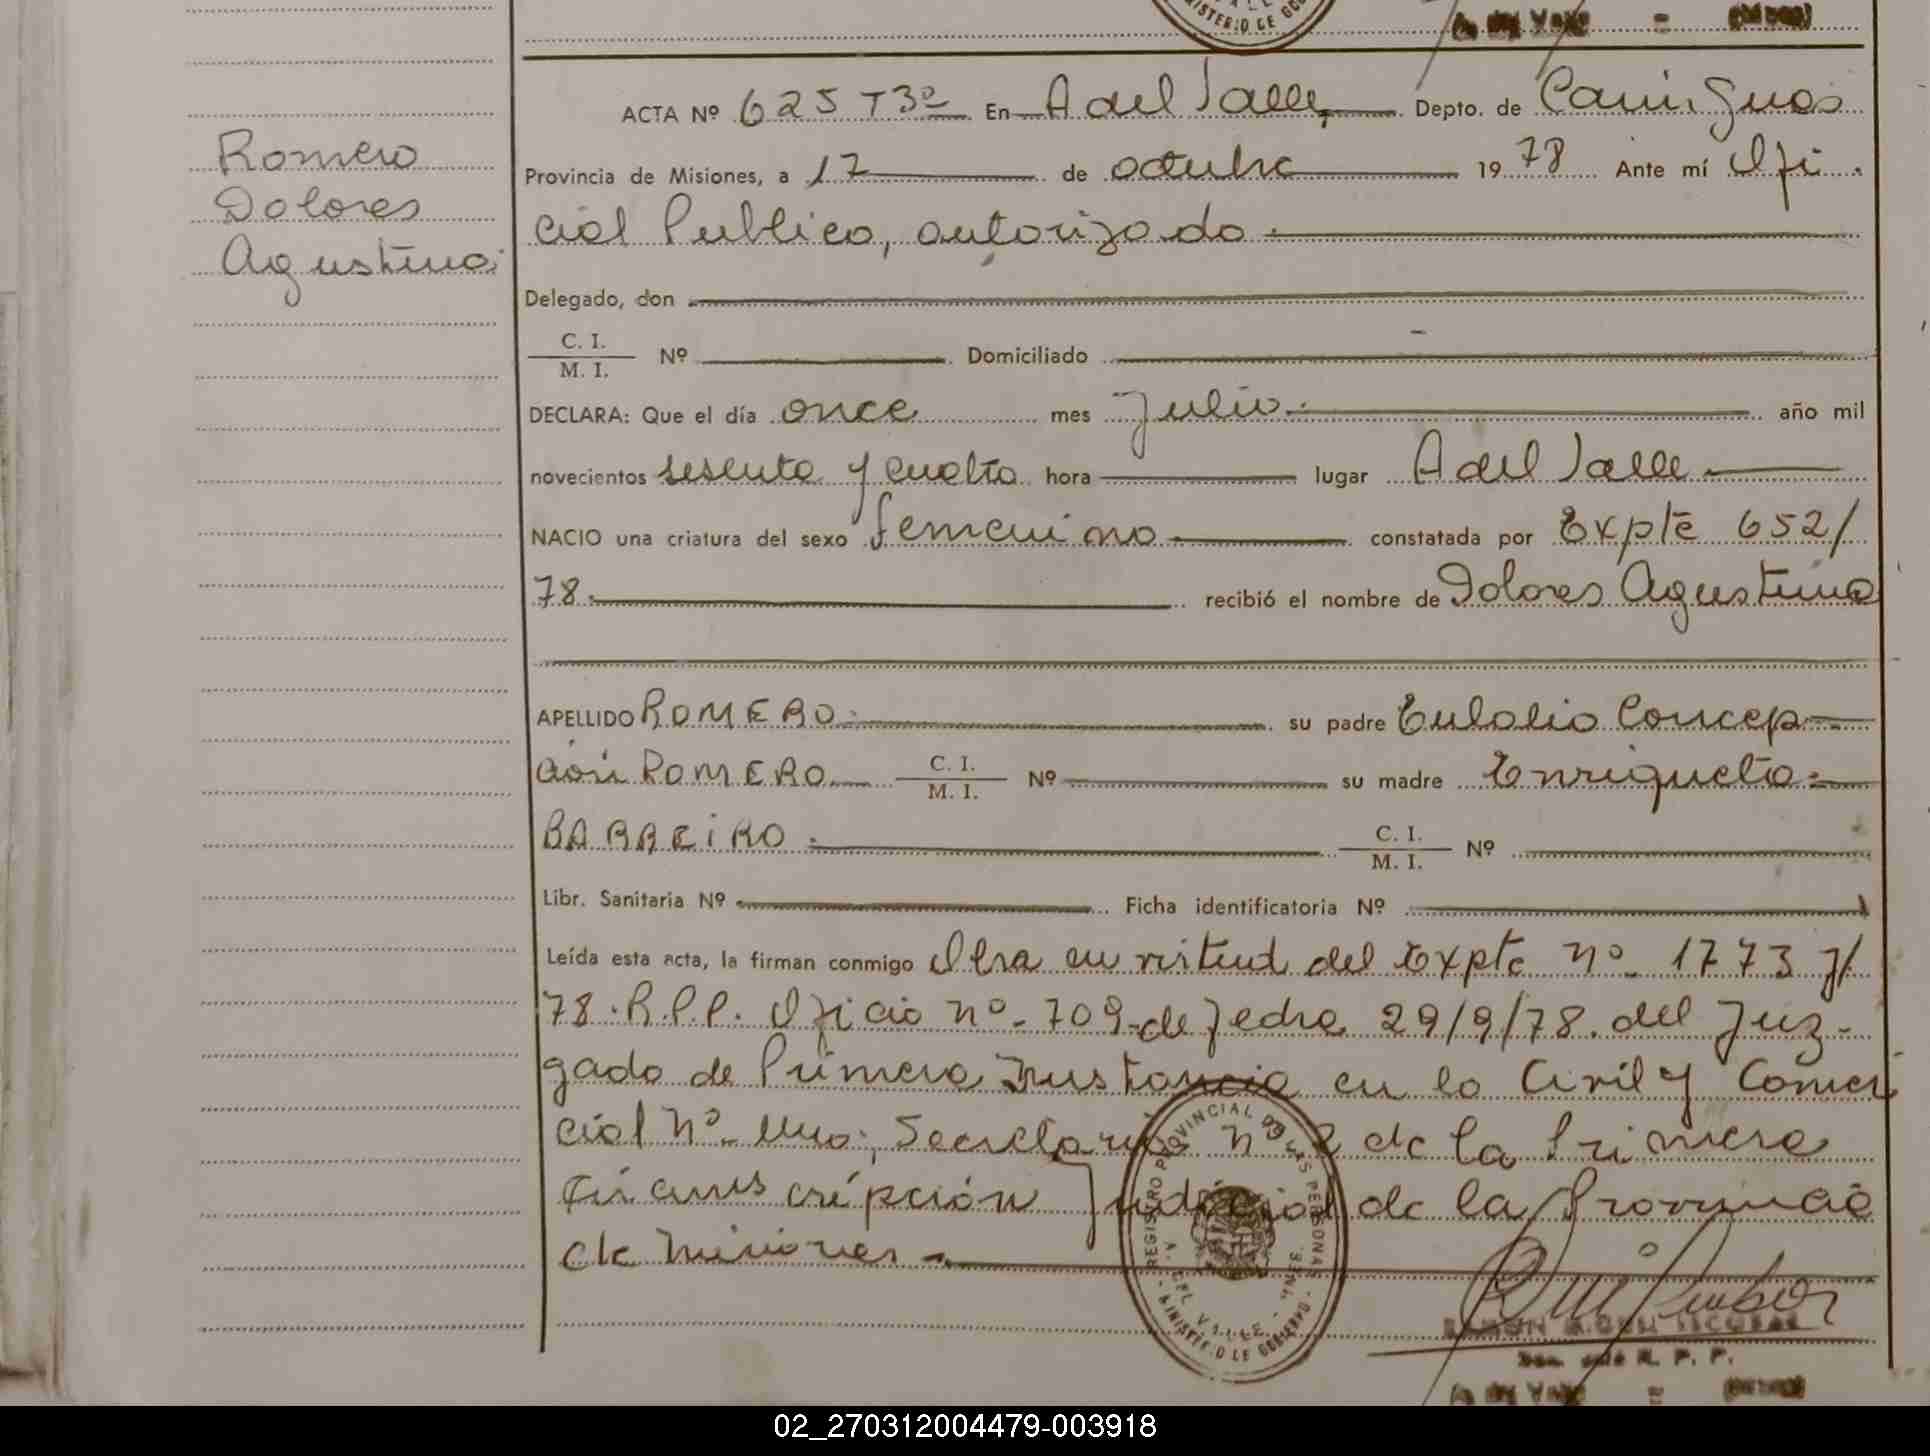 MINISTERIO DE GOB
A. del Valle = (Mnes)
ACTA Nº 625 T3º En A del Valle, Depto. de Cainguas
Romero
Dolores
Agustina
Provincia de Misiones, a 17 de octubre 1978 Ante mí Ofi
cial Publico, autorizado
Delegado, don
C. I.
M. I. Nº Domiciliado
DECLARA: Que el día once mes Julio año mil
novecientos sesenta y cuatro hora lugar A del Valle
NACIO una criatura del sexo femenino constatada por Expte 652/
78 recibió el nombre de Dolores Agustina
APELLIDO ROMERO su padre Eulalio Concep
ción ROMERO C. I. M. I. Nº su madre Enriqueta
BARREIRO C. I. M. I. Nº
Libr. Sanitaria Nº Ficha identificatoria Nº
Leída esta acta, la firman conmigo Obra en virtud del Expte Nº 1773 J/
78. R.P.P. Oficio Nº 709 de fecha 29/9/78. del Juz-
gado de Primera Instancia en lo Civil y Comer
cial Nº Uno; Secretaria Nº 2 de la Primera
Circunscripción Judicial de la Provincia
de Misiones
REGISTRO PROVINCIAL DE LAS PERSONAS
A. DEL VALLE - MNES.
MINISTERIO DE GOBIERNO
RAMON ESCOBAR
R. P. P.
A. del Valle = (Mnes)
02_270312004479-003918